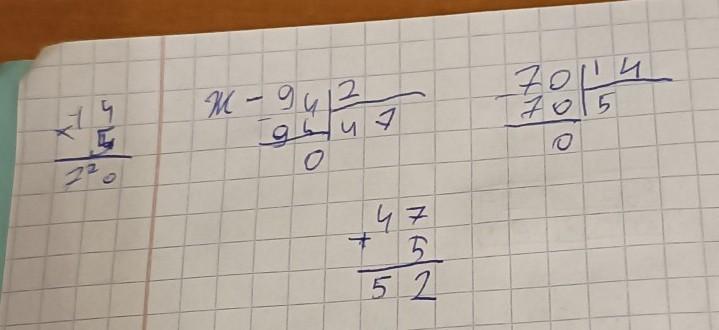 14
× 5
7²0
Ж - 94 | 2
94 | 47
0
70 | 14
- 70 | 5
0
47
+ 5
52